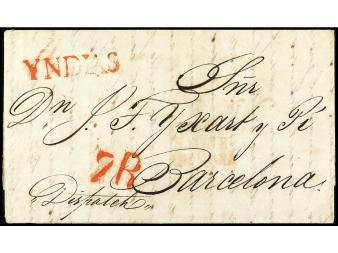 YNDIAS
Sñr
Dn. J. F. Yxart y Pi
7R
Barcelona.
Dispatch